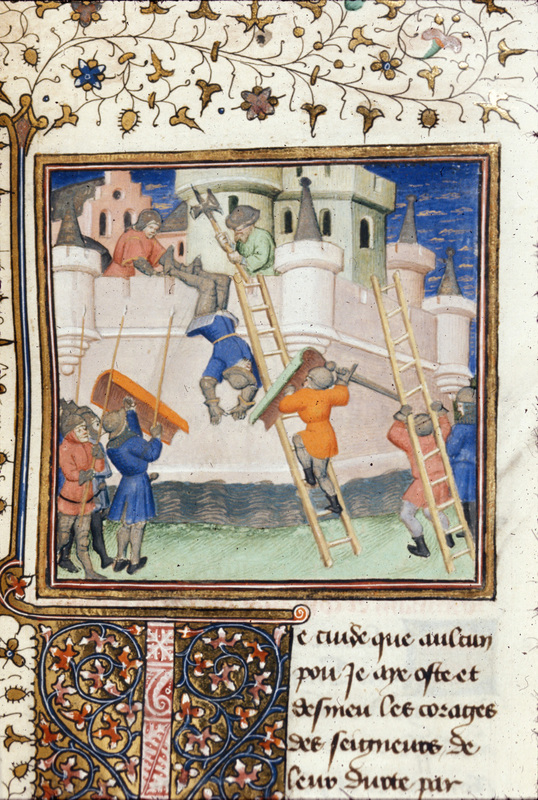 e cuide que aulcun
pou Je aye oste et
desmeu les corages
des seigneurs de
leur durte par